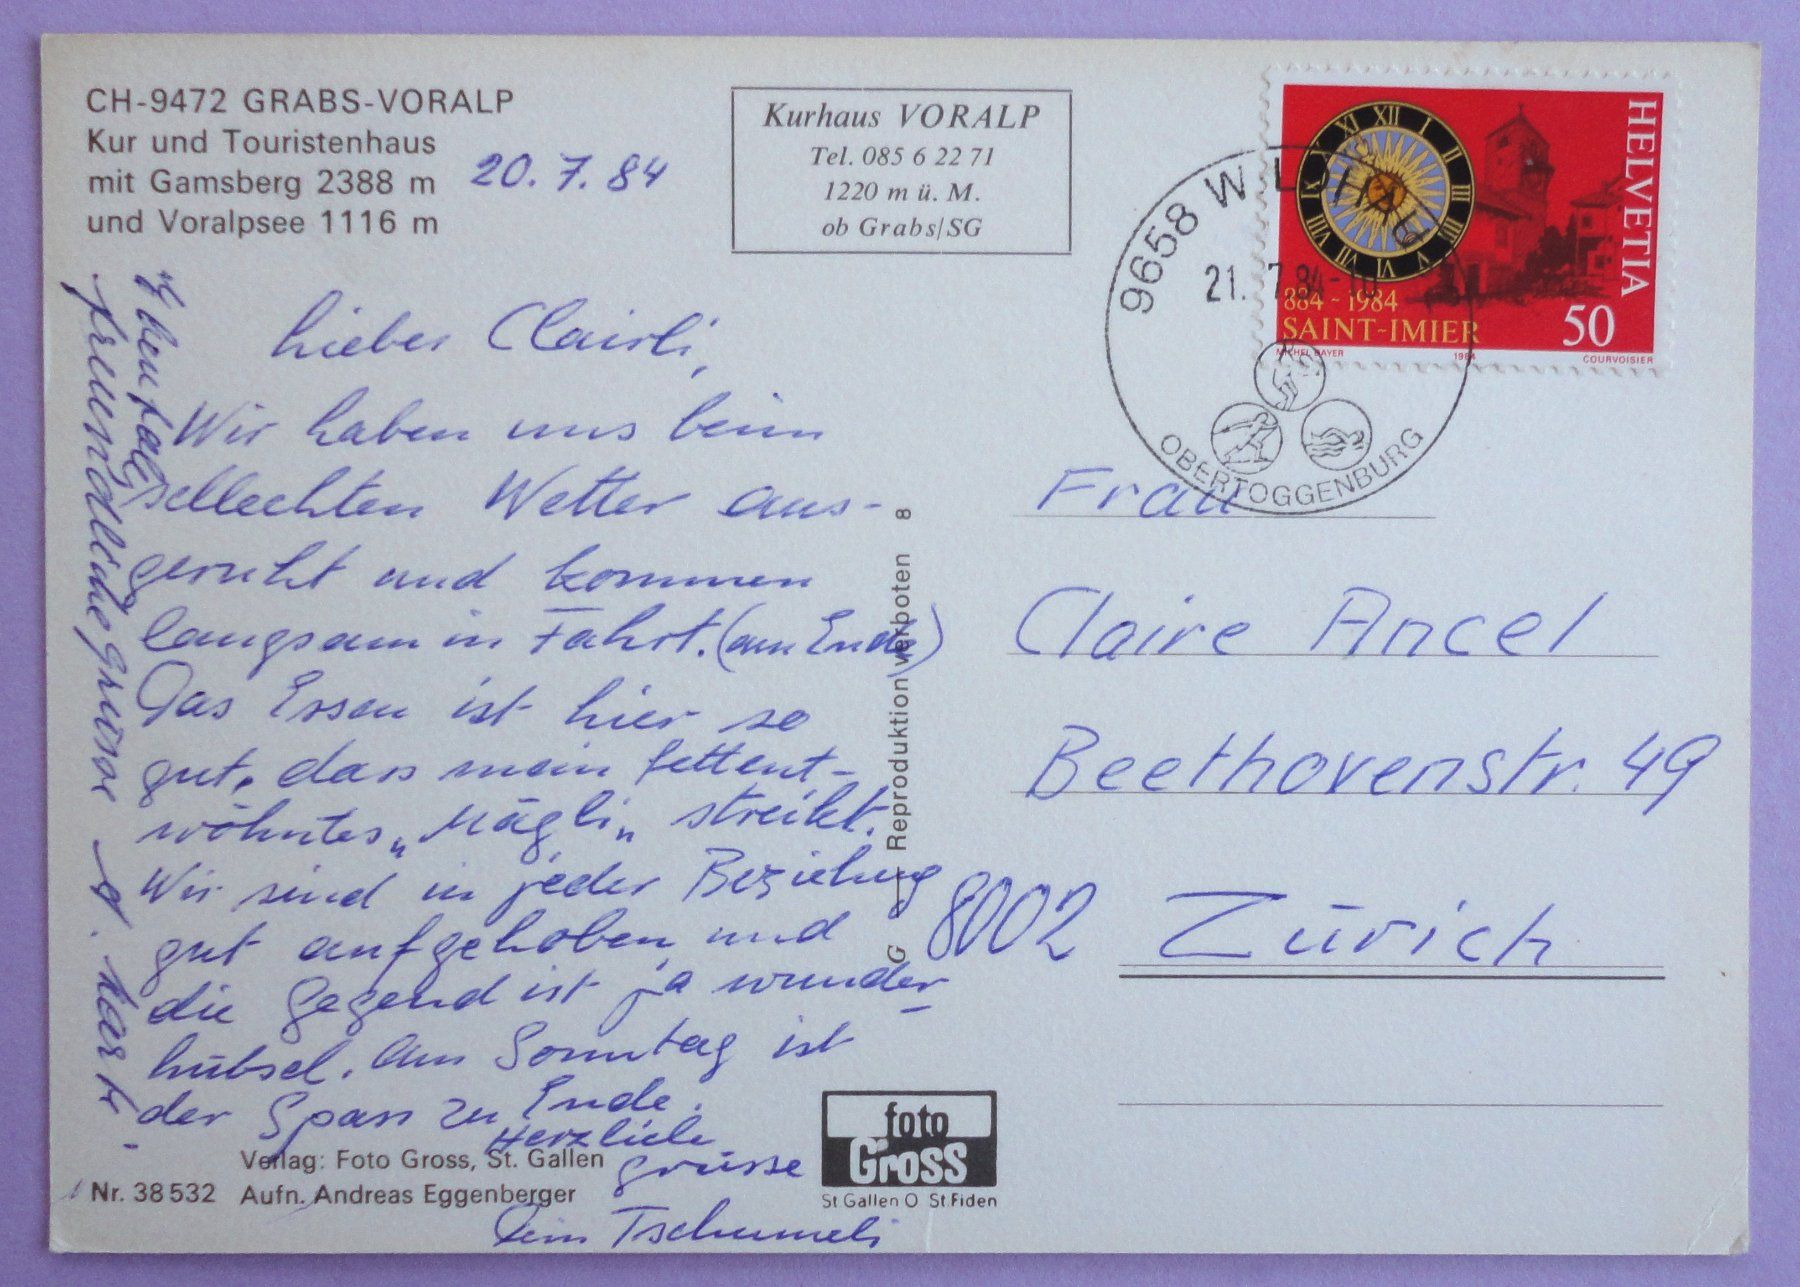 CH-9472 GRABS-VORALP
Kur und Touristenhaus
mit Gamsberg 2388 m
und Voralpsee 1116 m
20.7.84
Kurhaus VORALP
Tel. 085 6 22 71
1220 m ü. M.
ob Grabs/SG
HELVETIA
XII I II III V VI VII VIII XI X XI
884-1984
SAINT-IMIER
50
MICHEL BAYER 1984 COURVOISIER
9658 WILDHAUS
21.7.84-18
OBERTOGGENBURG
Liebes Clairli,
Wir haben uns beim
schlechten Wetter aus-
geruht und kommen
langsam in Fahrt. (am Ende)
Das Essen ist hier so
gut, dass mein fettent-
wöhntes „Mägli„ streikt.
Wir sind in jeder Beziehung
gut aufgehoben, und
die Gegend ist ja wunder-
hübsch. Am Sonntag ist
der Spass zu Ende.
Herzliche
Grüsse
Dein Tschumeli
Ebenfalls
freundliche Grüsse
Reproduktion verboten 8
G
Frau
Claire Ancel
Beethovenstr. 49
8002 Zürich
Verlag: Foto Gross, St. Gallen
Nr. 38532 Aufn. Andreas Eggenberger
foto
Gross
St Gallen O St.Fiden